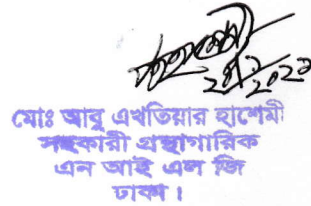 মোঃ আবু এখতিয়ার হাশেমী
সহকারী গ্রন্থাগারিক
এন আই এল জি
ঢাকা।